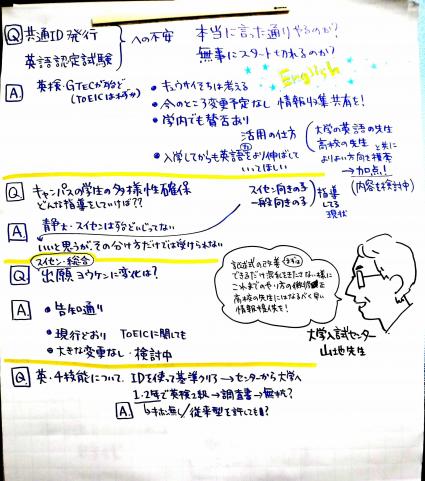 Q 共通ID発行
英語認定試験
への不安
本当に言った通りやるのか?
無事にスタートきれるのか?
English
A 英検・GTECがほとんど
(TOEICはわずか)
• 今のところ変更予定なし 情報収集共有を!
• 学内でも賛否あり
活用の仕方
• 入学してからも英語力をより伸ばして
いってほしい
大学の英語の先生
高校の先生と共に
よりよい方向を模索
→加点!
(内容を検討中)
Q キャンパスの学生の多様性確保
どんな指導をしていけば??
スイセン向きの子
一般向きの子
指導
してる
現状
A 静大・スイセンはほとんどいじってない
いいと思うが、その分け方だけでは受けられない
スイセン・総合
Q 出願ヨウケンに変化は?
A • 告知通り
• 現行どおり TOEICに関しても
• 大きな変更なし・検討中
入試の改善
できるだけ混乱をきたさない様に
これまでのやり方の
高校の先生にはなるべく早い
情報提供を!
大学入試センター
山地先生
Q 英・4技能について、IDを使って基準クリア→センターから大学へ
1・2年で英検2級→調査書→無効?
A